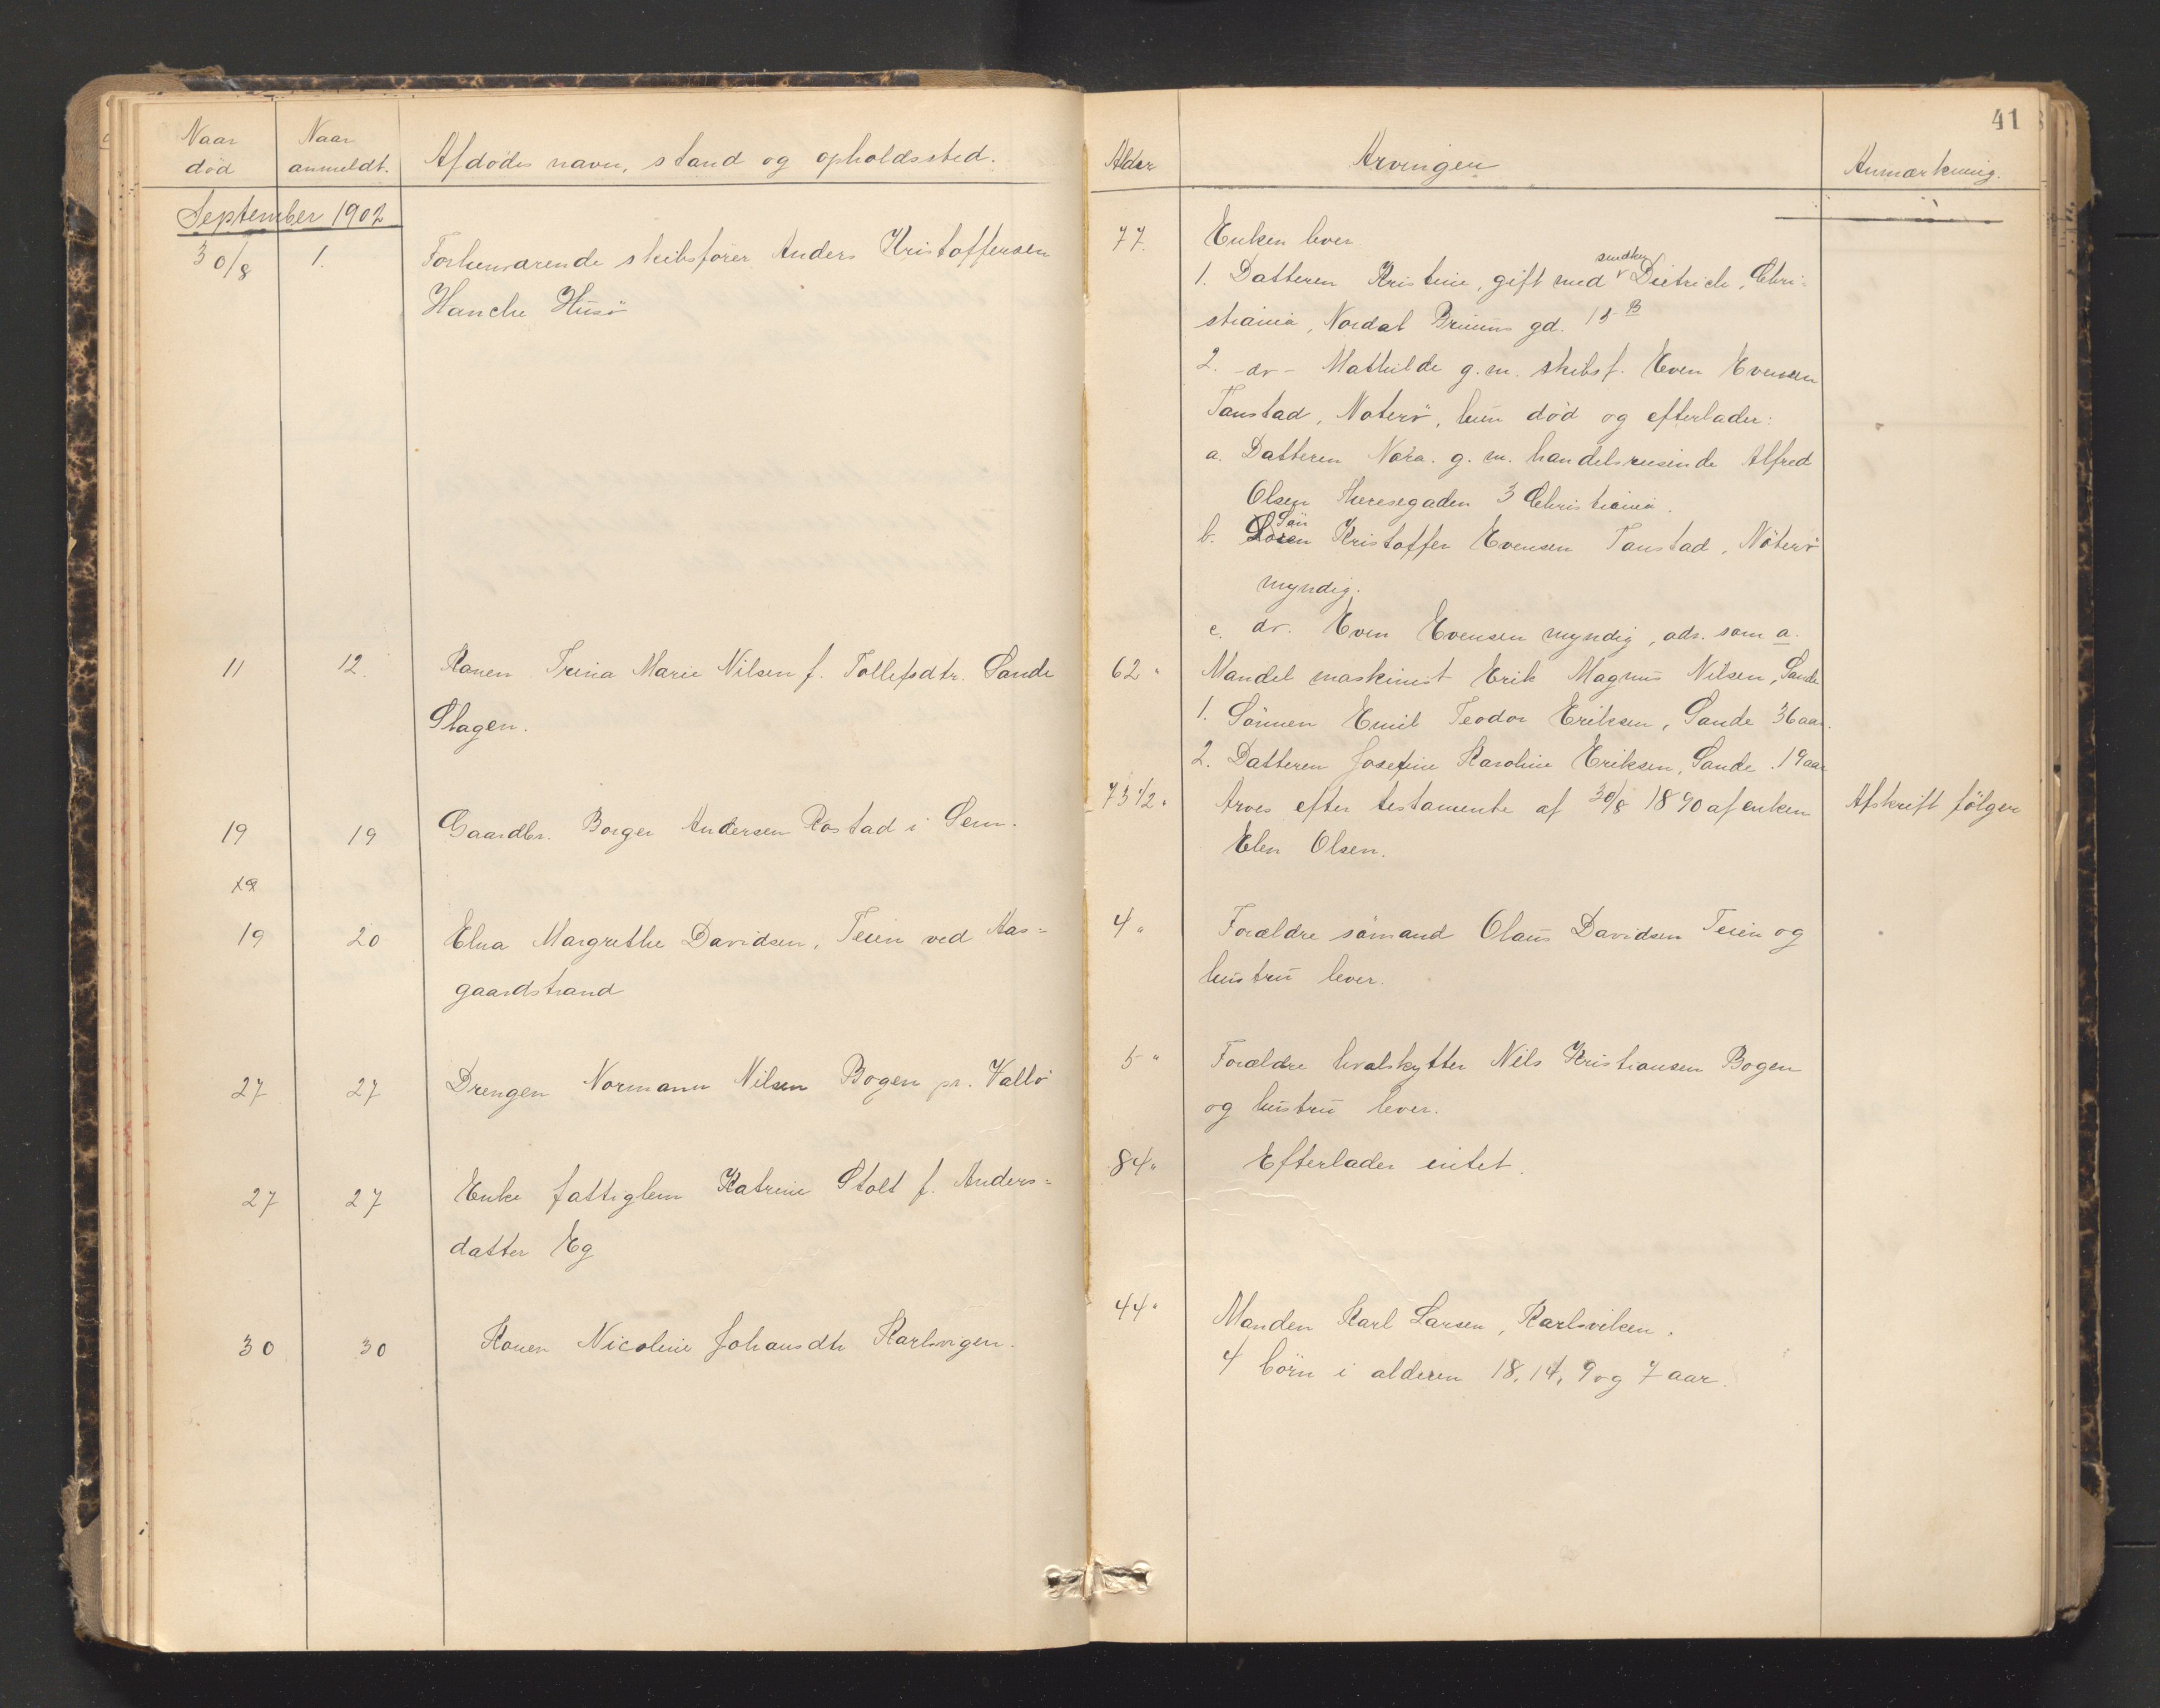 41
Naar død
Naar anmeldt.
Afdødes navn, stand og opholdssted.
Alder
Arvinger
Anmærkning.
September 1902
30/8 1. Forhenværende skibsfører Anders Kristoffersen
Hanche Husö
77. Enken lever.
1. Datteren Kristine, gift med Dietrich, Chri-
stiania, Nordal Bruuns gd. 15 B
2. -dr- Mathilde g. m. skibsf. Even Evensen
Tanstad, Noterö, hun död og efterlader:
a. Datteren Nora. g. m. handelsreisende Alfred
Olsen Theresegaden 3 Christiania.
b. Sön Kristoffer Evensen Tanstad, Nöterö
myndig.
c. dr. Even Evensen myndig, adr. som a.
11 12. Konen Trina Marie Nilsen f. Tollefsdtr. Sande
Slagen.
62 " Mandel maskinist Erik Magnus Nilsen, Sande
1. Sönnen Emil Teodor Eriksen, Sande 36 aar.
2. Datteren Josefine Karoline Eriksen, Sande. 19 aar
19 19 Gaardbr. Borger Andersen Rostad i Sem.
73 1/2 " Arves efter testamente af 30/8 1890 af enken
Elen Olsen.
Afskrift fölger
19
19 20 Elna Margrethe Davidsen, Teien ved Aas=
gaardstrand
4 " Forældre sömand Olaus Davidsen Teien og
hustru lever.
27 27 Drengen Normann Nilsen Bogen pr. Vallö
5 " Forældre hvalskytter Nils Kristiansen Bogen
og hustru lever.
27 27 Enke fattiglem Katrine Stolt f. Anders=
datter Eg
84 " Efterlader intet.
30 30 Konen Nicoline Johansdtr Karlsvigen.
44 " Manden Karl Larsen, Karlsviken.
4 börn i alderen 18, 14, 9 og 7 aar.